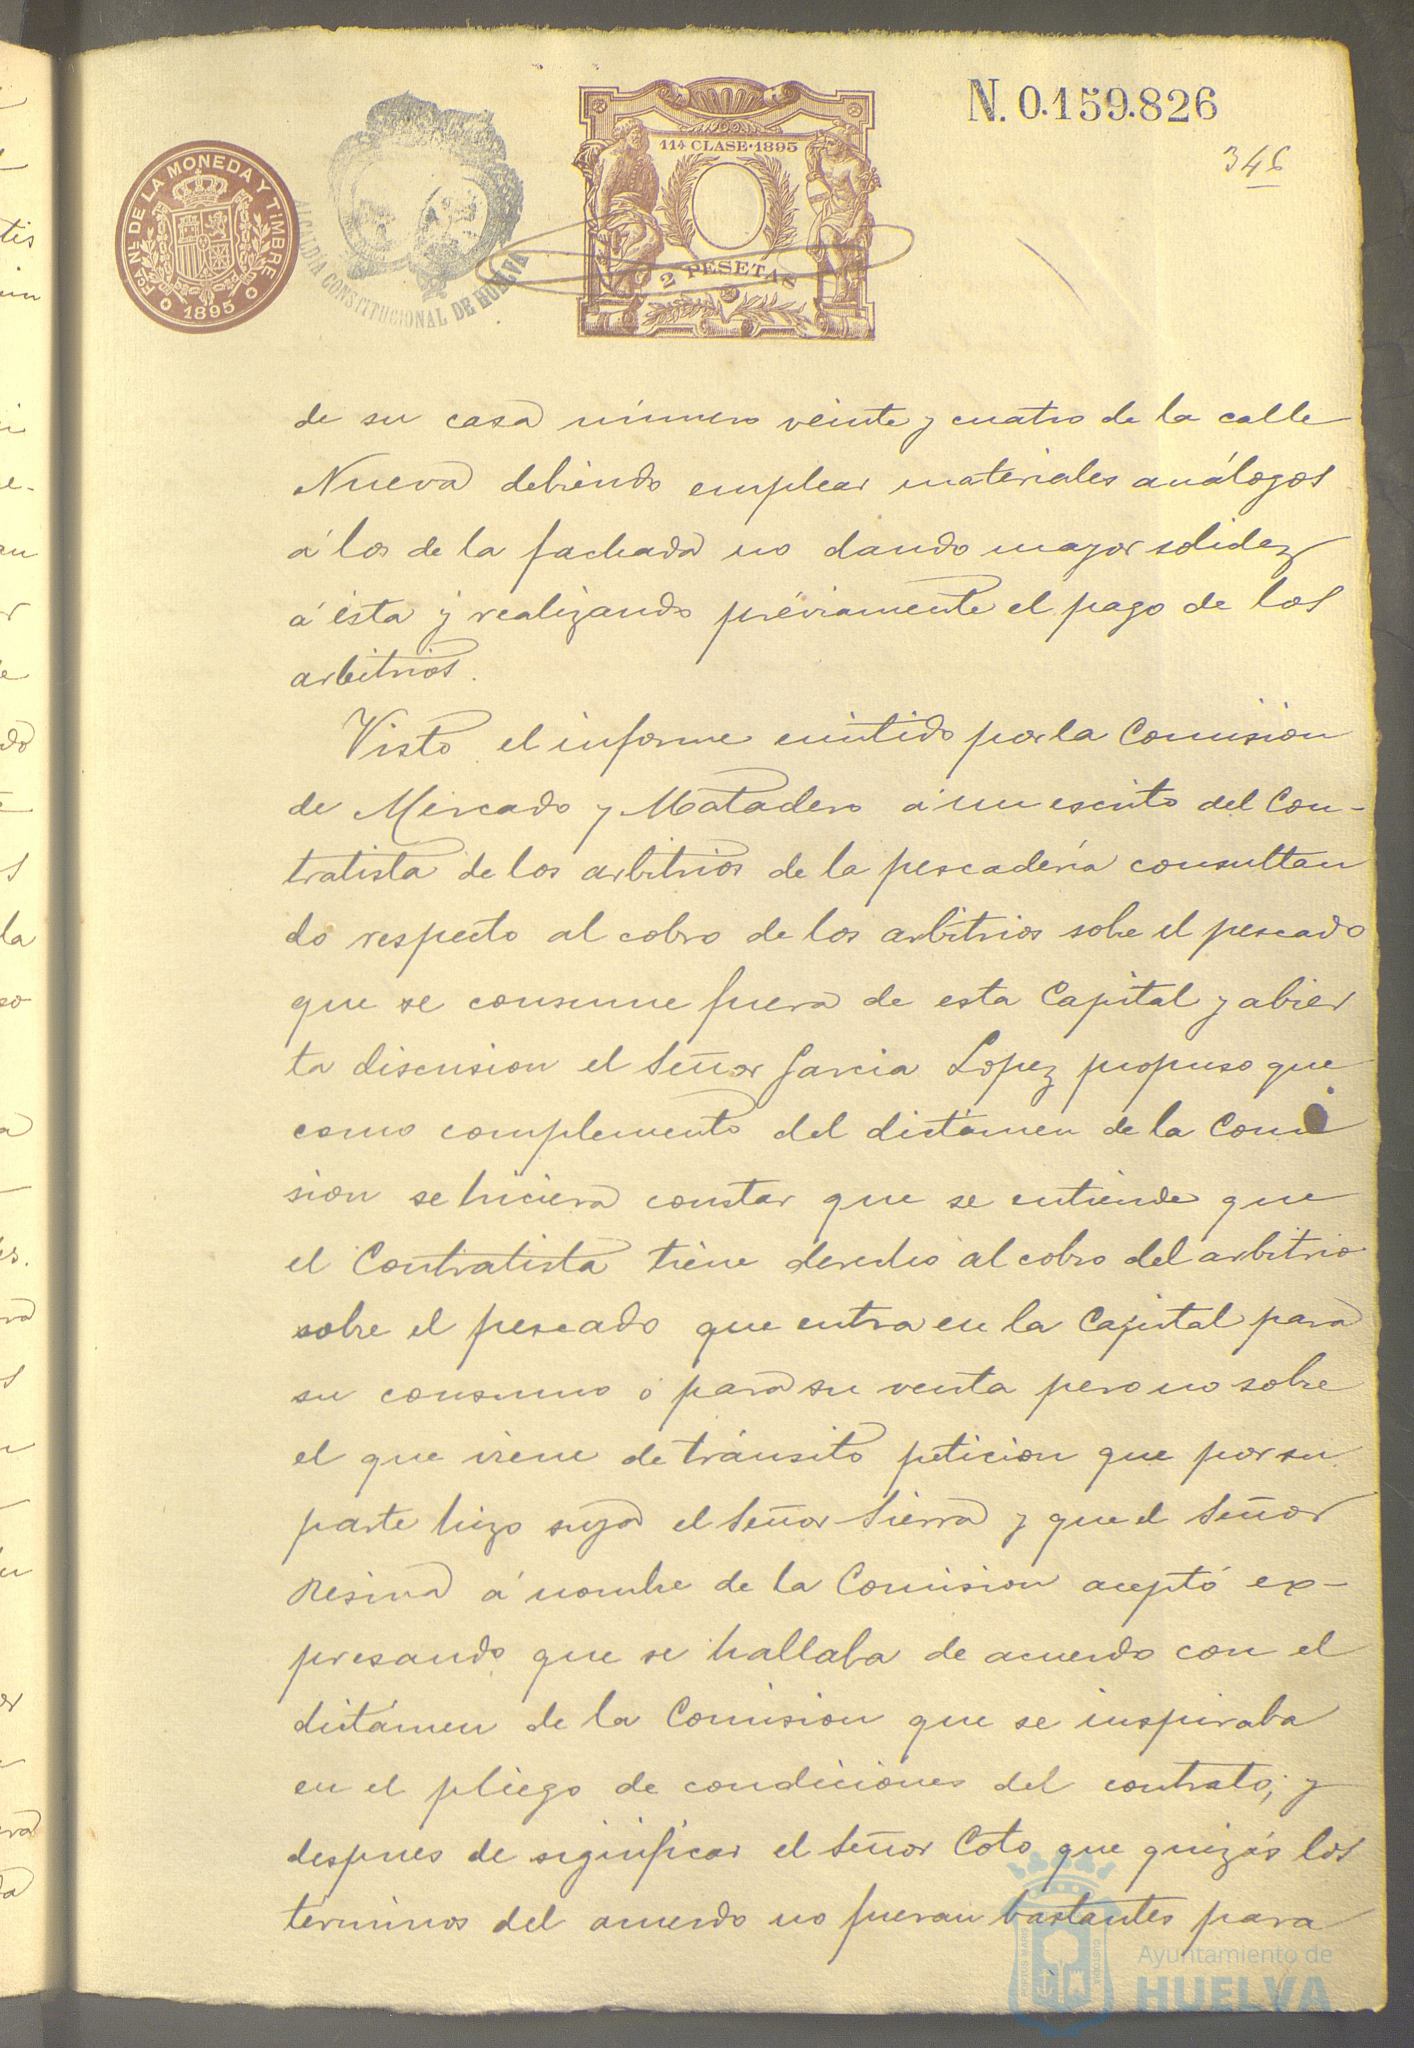 N. 0.159.826
346
FCA NL DE LA MONEDA Y TIMBRE
1895
ALCALDIA CONSTITUCIONAL DE HUELVA
11ª CLASE·1895
2 PESETAS
de su casa número veinte y cuatro de la calle
Nueva debiendo emplear materiales análogos
á los de la fachada no dando mayor solidez
á ésta y realizando préviamente el pago de los
arbitrios.
Visto el informe emitido por la Comisión
de Mercado y Matadero á un escrito del Con-
tratista de los arbitrios de la pescadería consultan
do respecto al cobro de los arbitrios sobre el pescado
que se consume fuera de esta Capital y abier
ta discusion el Señor Garcia Lopez propuso que
como complemento del dictámen de la Comi
sion se hiciera constar que se entiende que
el Contratista tiene derecho al cobro del arbitrio
sobre el pescado que entra en la Capital para
su consumo ó para su venta pero no sobre
el que viene de tránsito peticion que por su
parte hizo suya el Señor Sierra y que el Señor
Resina á nombre de la Comision aceptó ex-
presando que se hallaba de acuerdo con el
dictámen de la Comision que se inspiraba
en el pliego de condiciones del contrato; y
despues de significar el Señor Coto que quizás los
términos del acuerdo no fueran bastantes para
Ayuntamiento de
HUELVA